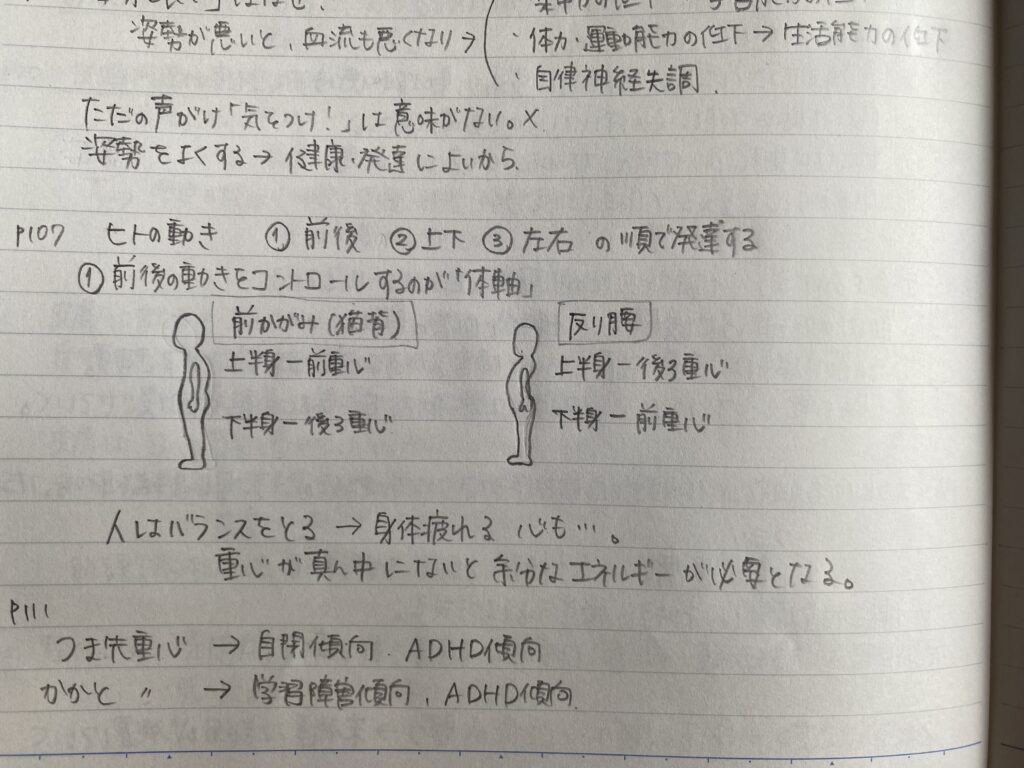 姿勢が悪いと、血流も悪くなり→
・体力・運動能力の低下→生活能力の低下
・自律神経失調.
ただの声がけ「気をつけ!」は意味がない。×
姿勢をよくする→健康・発達によいから.
P107 ヒトの動き ①前後 ②上下 ③左右 の順で発達する
①前後の動きをコントロールするのが「体軸」
前かがみ(猫背)
上半身ー前重心
下半身ー後ろ重心
反り腰
上半身ー後ろ重心
下半身ー前重心
人はバランスをとる → 身体疲れる 心も…。
重心が真ん中にないと余分なエネルギーが必要となる。
P111
つま先重心 → 自閉傾向. ADHD傾向
かかと 〃 → 学習障害傾向. ADHD傾向.